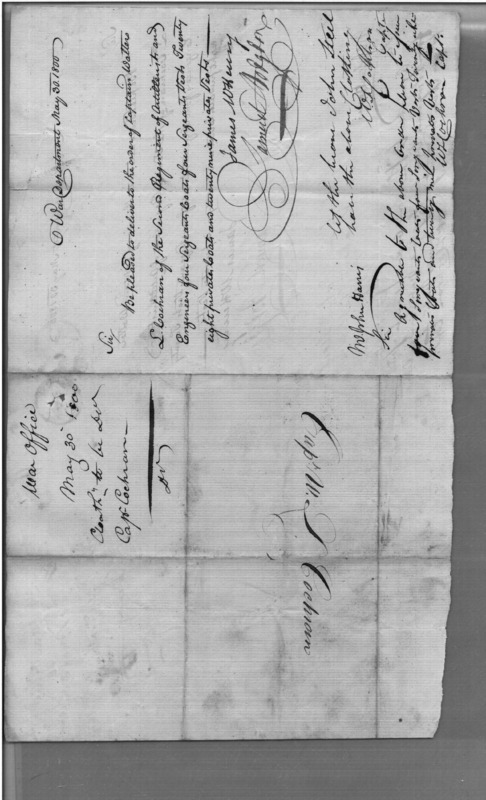 War Department May 30. 1800
Sir,
Be pleased to deliver to the order of Captain Walter
L Cochran of the Second Regiment of Artillerists and
Engineers four Sergeants Coats four Sergeants Vests Twenty
eight private Coats and twenty nine private Vests
James McHenry
let the bearer John Steel
have the above Clothing
Mr John Harris
Sir
Agreeable to the above order to
four Sergeants Coats four Sergeants Vests Twenty eight
private Coats and twenty nine privates Vests
W L Cochran Capt.
War Office
May 30th 1800
Cloathg to be Dd
Capt Cochran
Capt. W. L Cochran